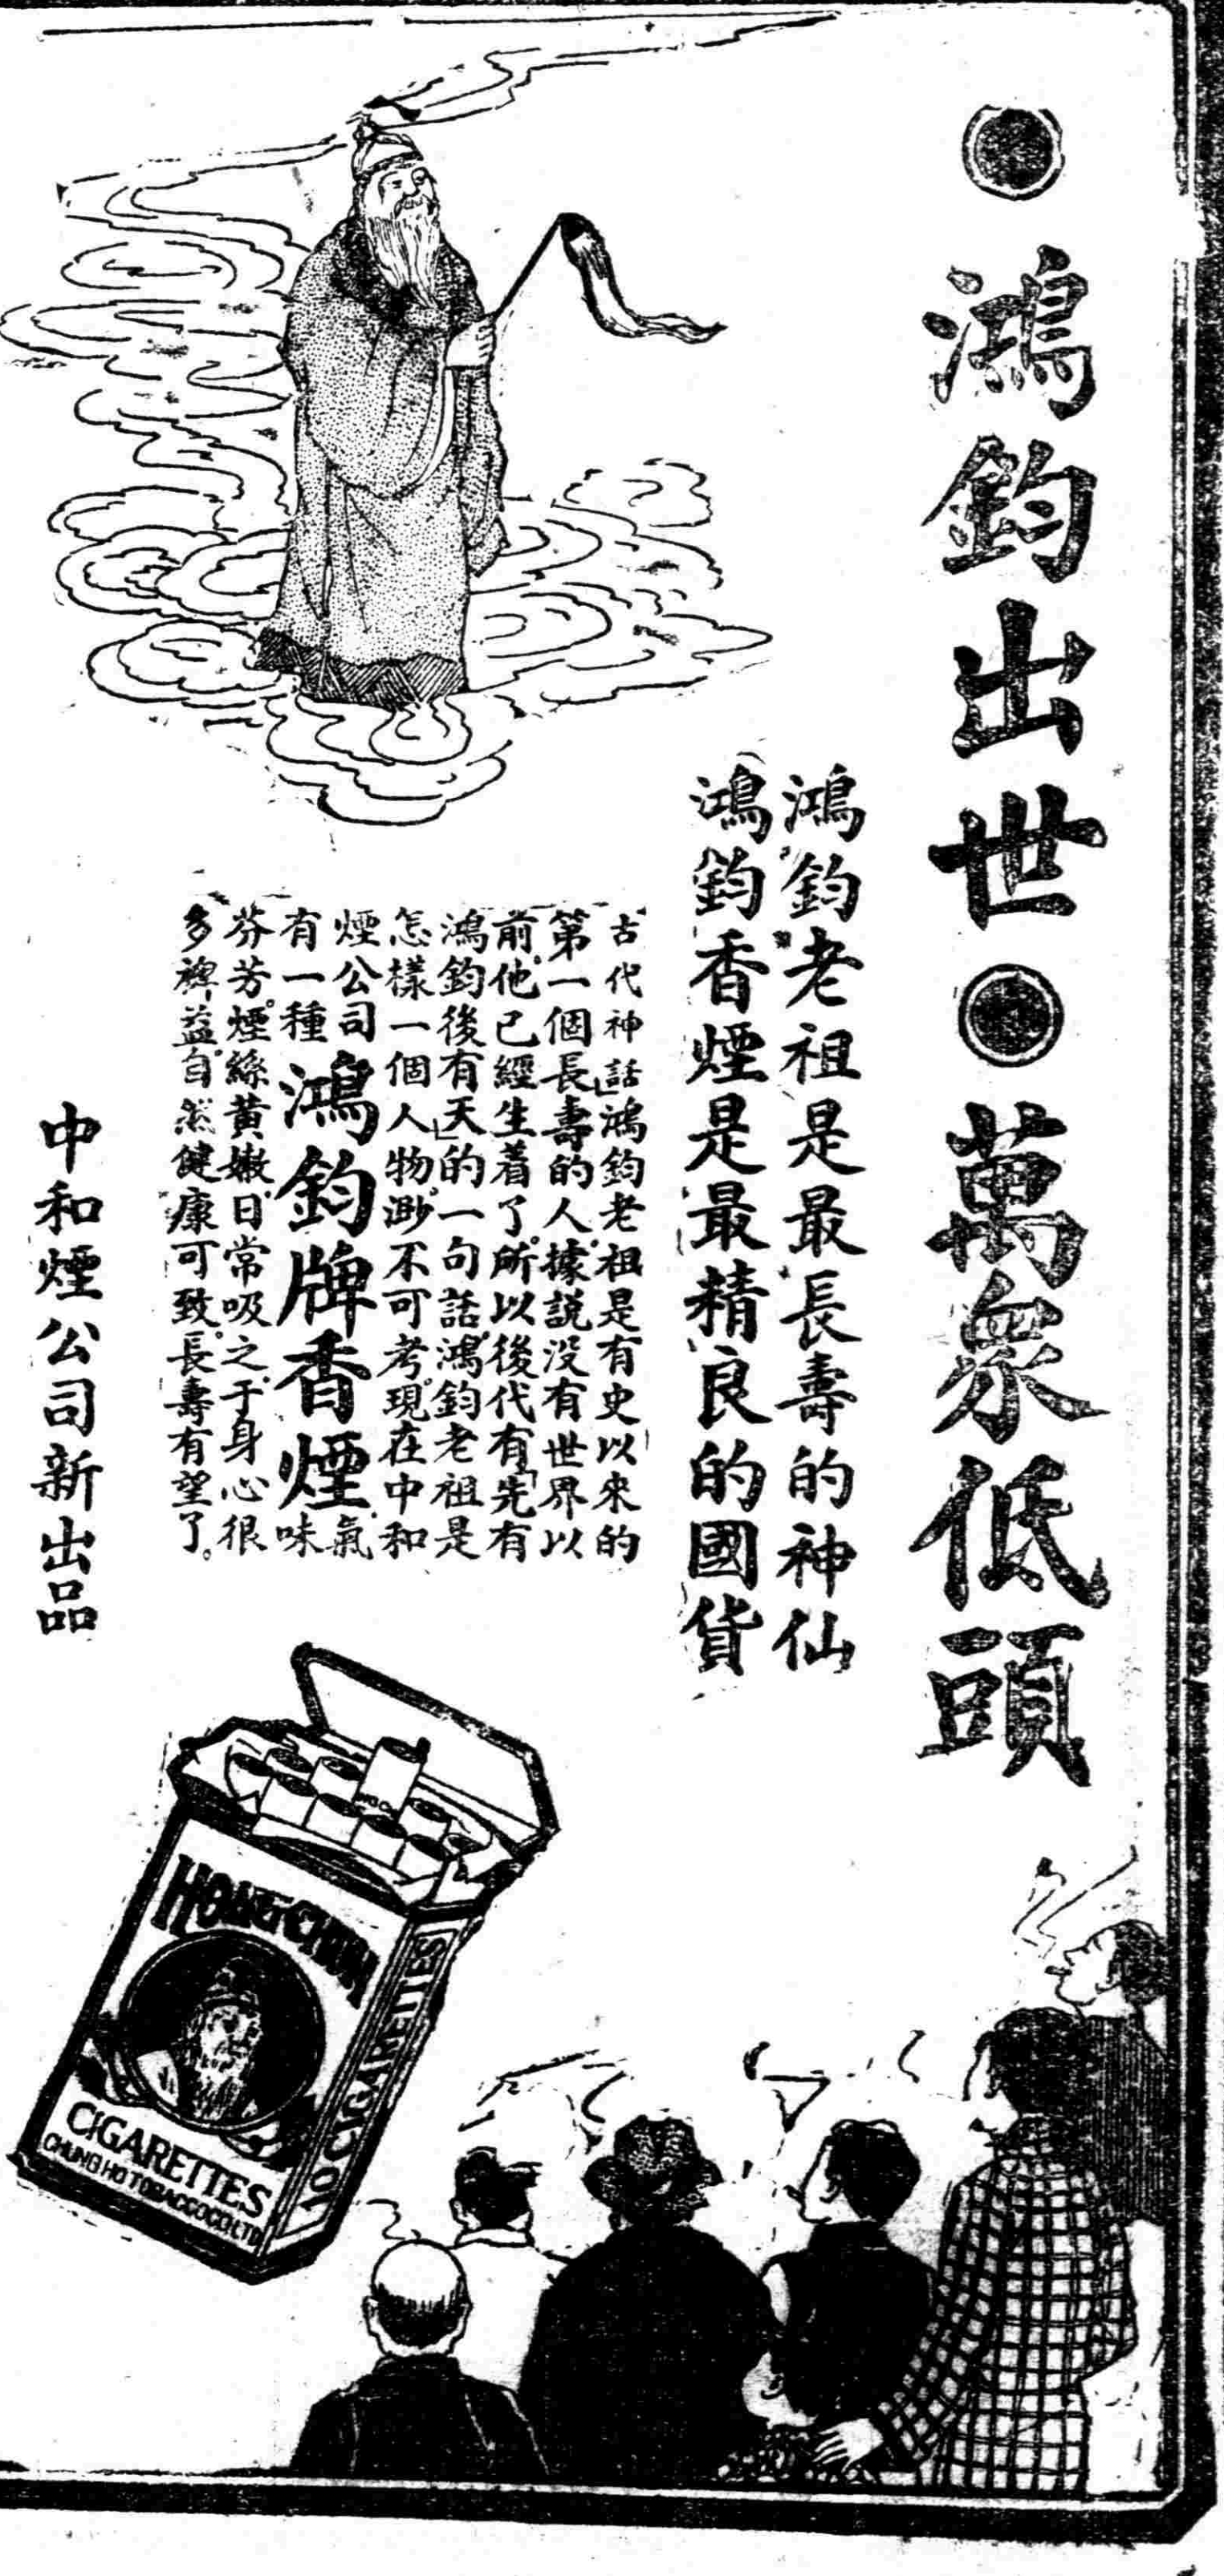 ●鴻鈞出世●萬眾低頭
鴻鈞老祖是最長壽的神仙
鴻鈞香煙是最精良的國貨
古代神話「鴻鈞老祖是有史以來的
第一個長壽的人。據說沒有世界以
前。他已經生着了。所以後代有「先有
鴻鈞後有天」的一句話。鴻鈞老祖是
怎樣一個人物。渺不可考。現在中和
煙公司
有一種鴻鈞牌香煙。氣味
芬芳。煙絲黃嫩。日常吸之。于身心很
多裨益。自然健康可致。長壽有望了。
中和煙公司新出品
HOUNG CHUN
CIGARETTES
CHUNG HO TOBACCO CO LTD
10 CIGARETTES